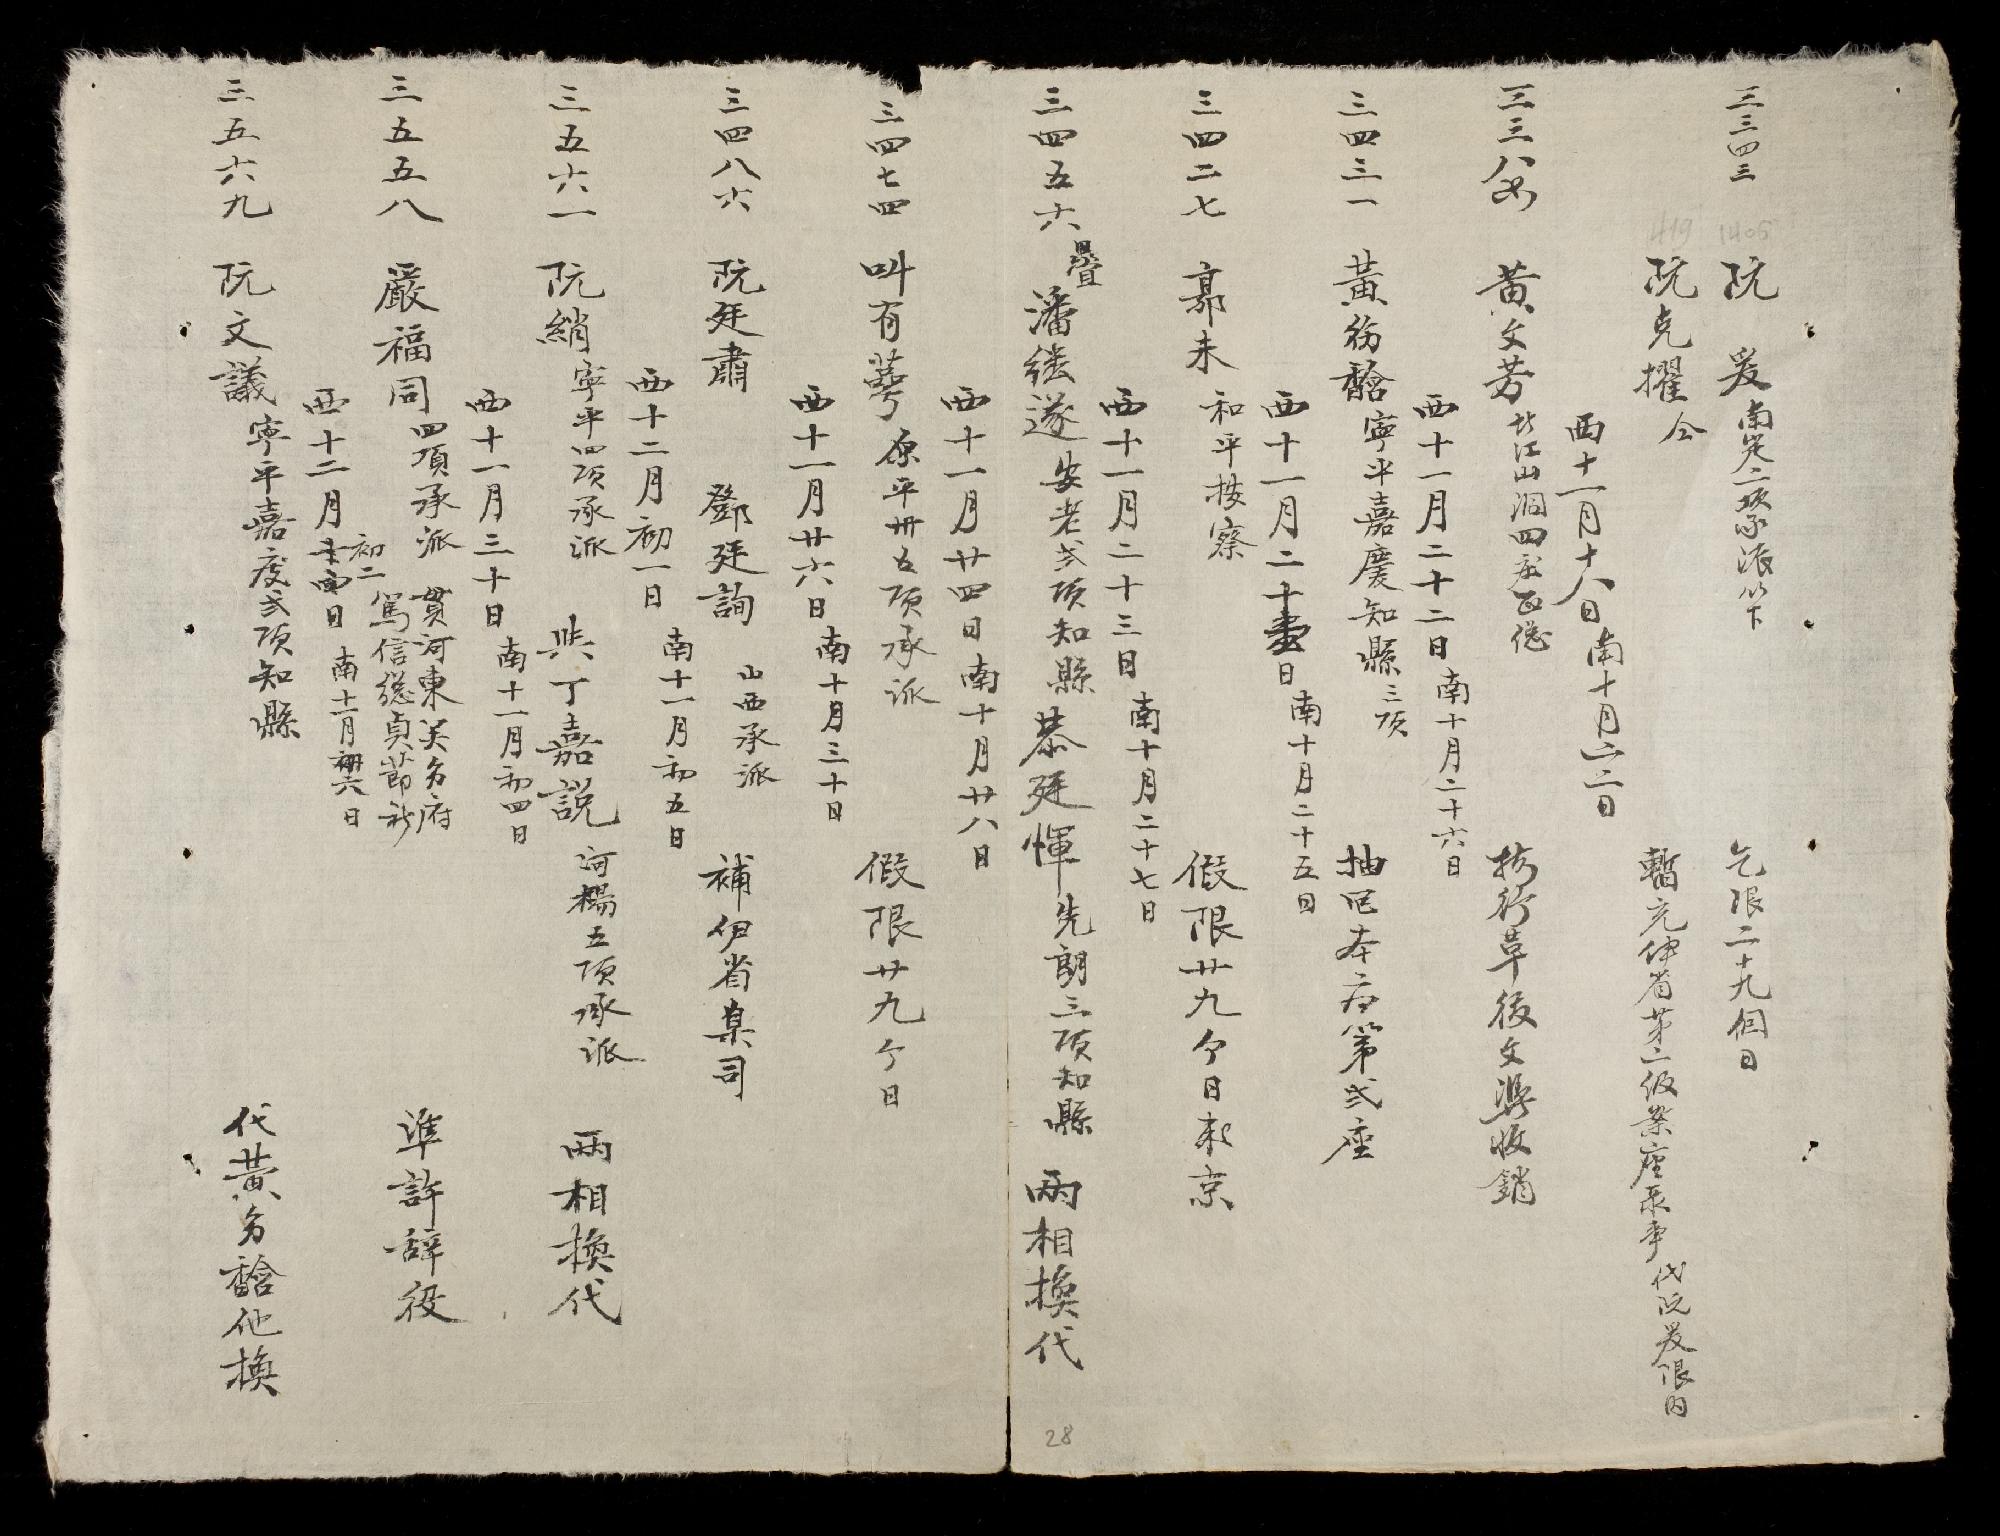 三三四三 阮爰 南定二項承派 乞限二十九個日
1405
419
阮克擢 仝 暫充伊省第二級案座承事代阮爰限內
西十一月十八日 南十月二日
三三八 黃文芳 北江山洞四 正總 擬行草後文準收銷
西十一月二十二日 南十月二十六日
三四三一 黃務馠 寧平嘉慶知縣三項 抽回本府第弍座
西十一月二十 日 南十月二十五日
三四二七 郭未 和平按察 假限廿九个日東京
西十一月二十三日 南十月二十七日
三四五六 疊 潘继遂 安老弍項知縣 恭廷惲 先朗三項知縣 兩相換代
西十一月廿四日 南十月廿八日
三四七四 叫有萼 原平卅五項承派 假限廿九个日
西十一月廿六日 南十月三十日
三四八六 阮廷肅 鄧廷詢 山西承派 補伊省臬司
西十二月初一日 南十一月初五日
三五六一 阮綃 寧平四項承派 與丁嘉說 河楊五項承派 兩相換代
西十一月三十日 南十一月初四日
三五五八 嚴福同 四項承派 貫河東 府 篤信總貞節社 準許辭役
西十二月初二日 南十一月初六日
三五六九 阮文議 寧平嘉慶弍項知縣 代黃务馠他換
28